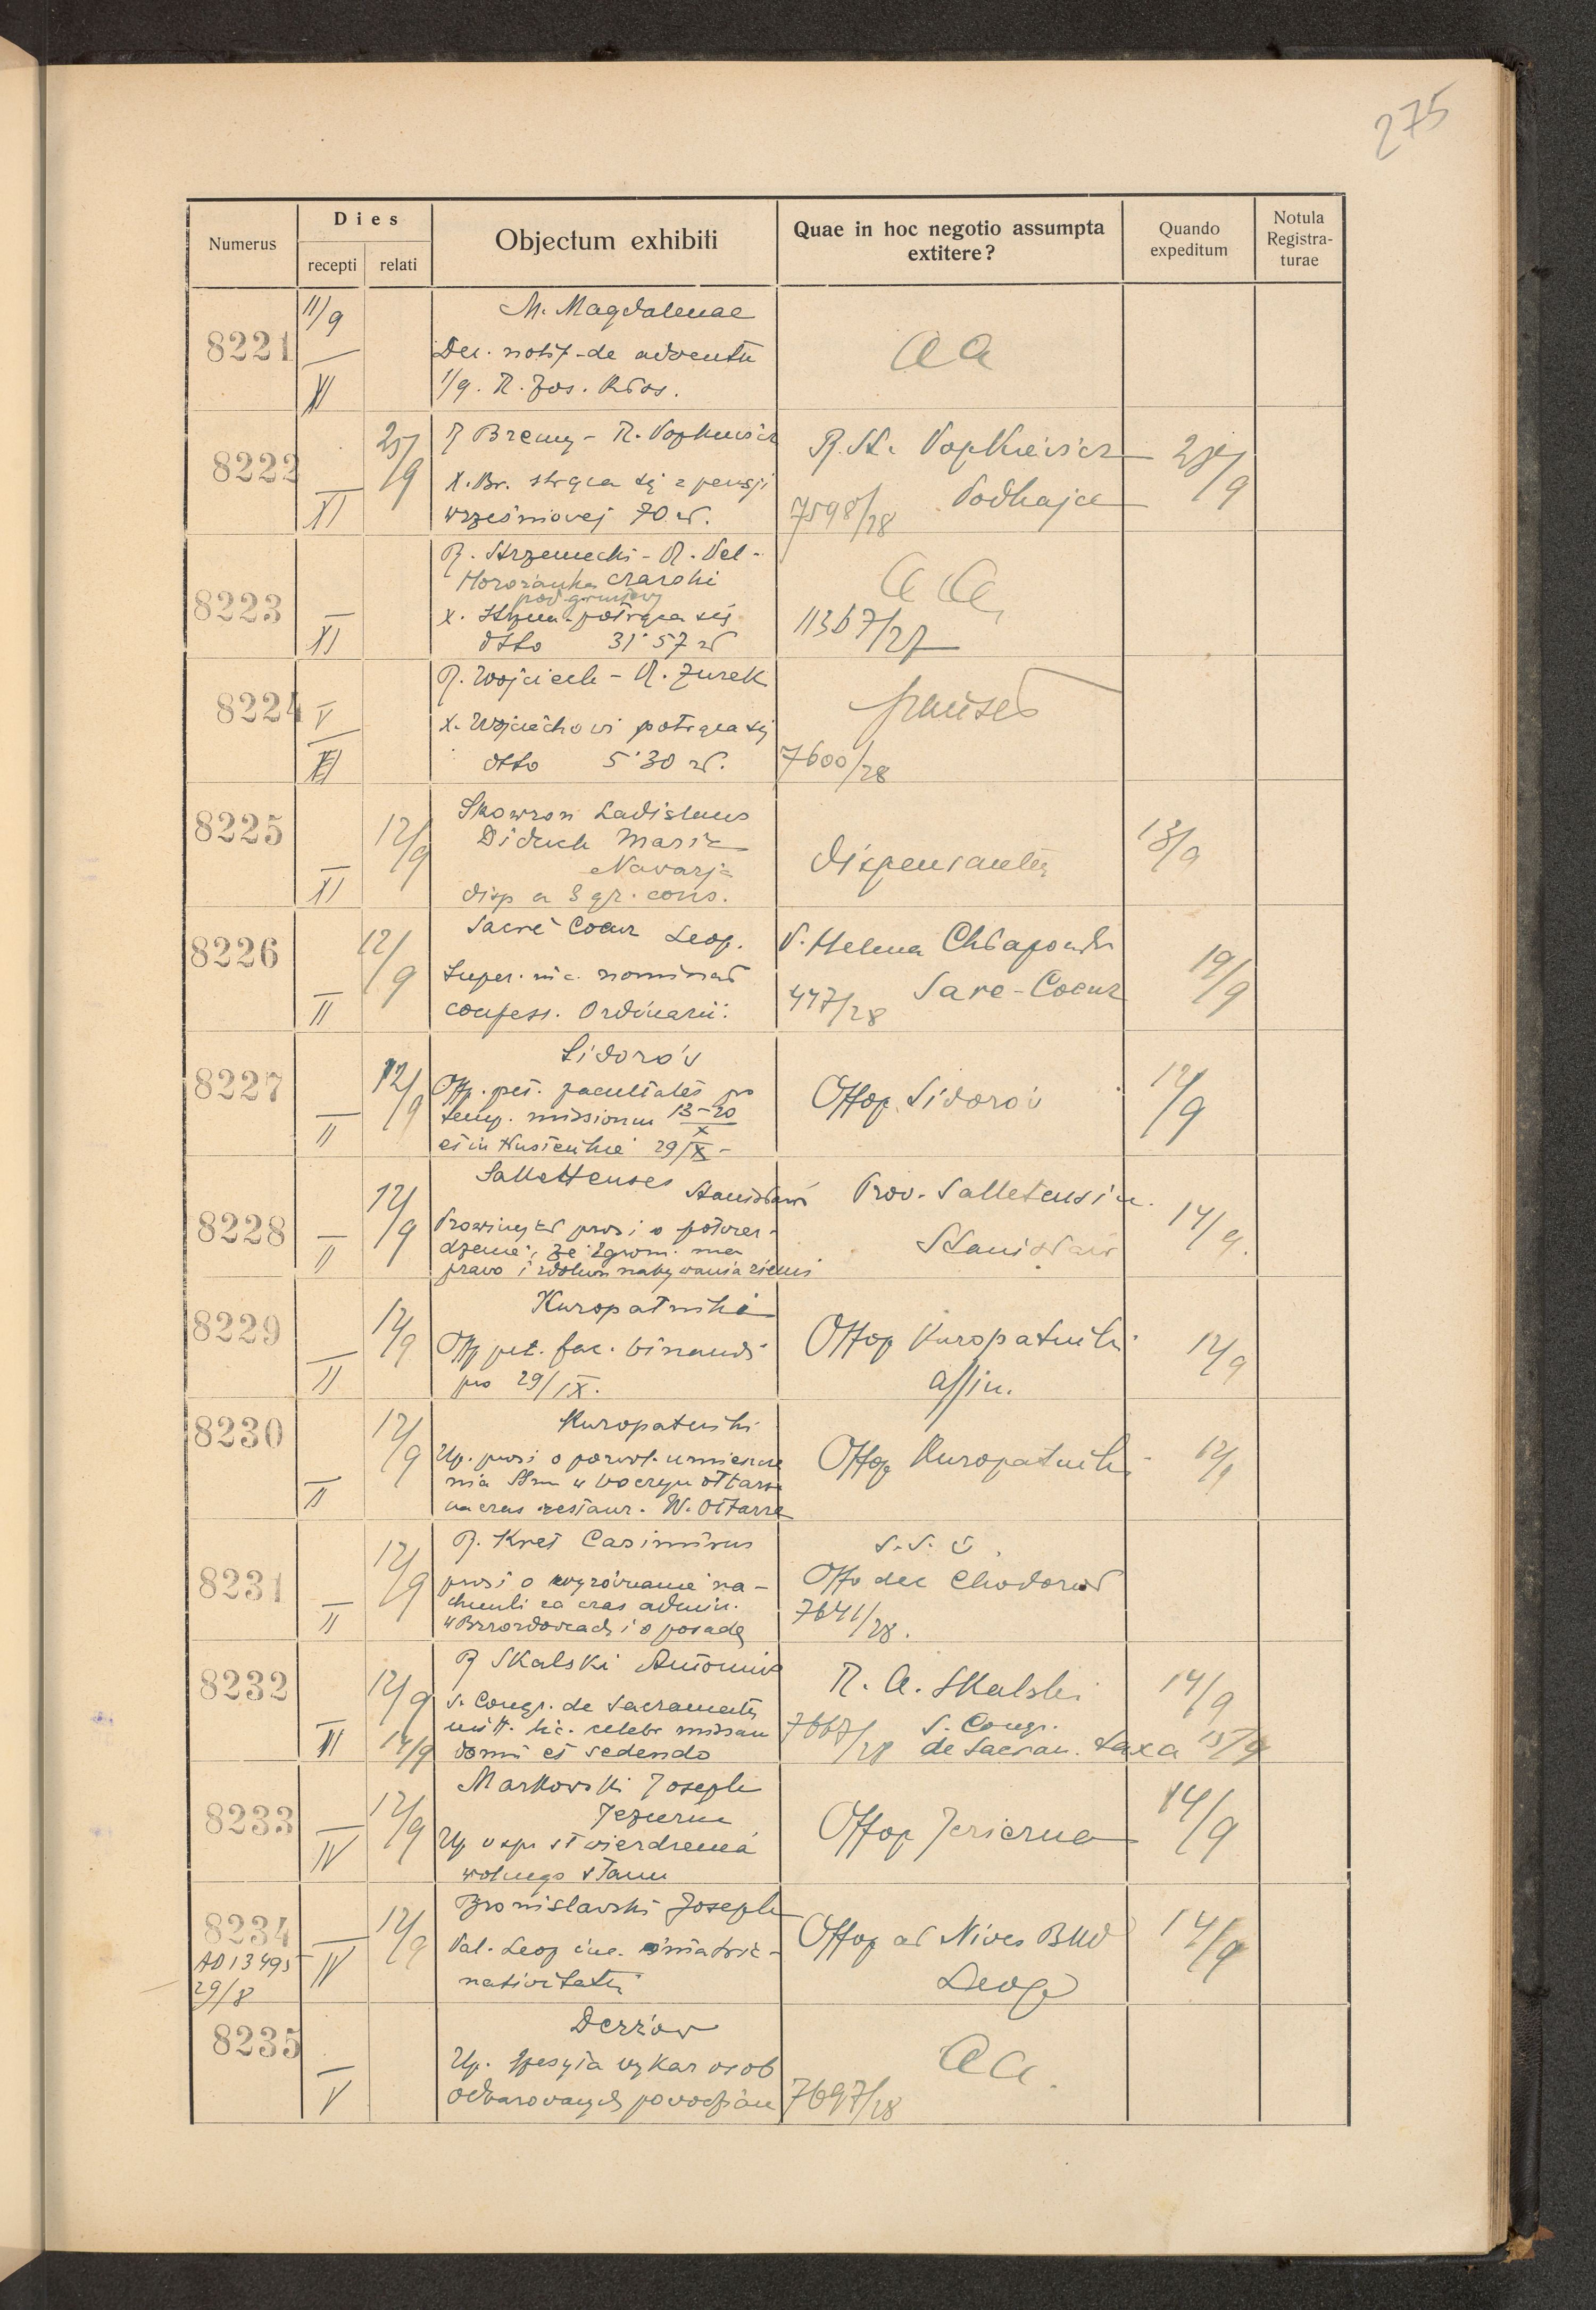 275
Numerus
Dies
recepti
relati
Objectum exhibiti
Quae in hoc negotio assumpta
extitere?
Quando
expeditum
Notula
Registra-
turae
8221
11/9
XI
M. Magdalenae
Dec. notif. de adventu
1/9. R. Jos. Kłos.
aa
8222
XI
25/9
R Bremy - R.
X. Br. strąca się z pensji
wrześniowej 70 zł.
R. St.
7598/28 Podhajce
25/9
8223
XI
R. Strzemecki - R. Pel-
Horożanka czarski
X. potrąca się
dtto 31'57 zł
aa
11367/27
8224
V
XI
R. Wojciech - R. Żurek
X. Wojciechowi potrąca się
dtto 5'30 zł.
7600/28
8225
XI
12/9
Skowron Ladislaus
Diduch Maria
Navarja
disp a 3 gr. cons.
dispensantur
13/9
8226
II
12/9
Sacré Coeur Leop.
Super. nominat
confess. Ordinarii.
V. Helena Chłapowska
447/28 Sacre-Coeur
19/9
8227
II
12/9
Sidorów
Offp. pet. facultates pro
temp. missionum 13-20
X
et in 29/IX -
Offop Sidorów
12/9
8228
II
12/9
Sallettenses Stanisławów
Prowincjał prosi o potwier-
dzenie, że Zgrom. ma
prawo i nabywania ziemi
Prov. Salletensium
Stanisławów
14/9.
8229
II
12/9
Kuropatniki
Offp pet. fac. binandi
pro 29/IX.
Offop Kuropatniki
affirm.
12/9
8230
II
12/9
Kuropatniki
Up. prosi o pozwol. umieszcze
nia SSmi w bocznym ołtarzu
na czas restaur. W. Ołtarza
Offop Kuropatniki
12/9
8231
II
12/9
R. Kret Casimirus
prosi o wyrównanie ra-
chunki za czas admin.
w Brzozdowcach i o posadę
Offo dec Chodorów
7641/28.
8232
II
12/9
14/9
R Skalski Antonius
S. Congr. de Sacramentis
mitt. lic. celebr missam
domi et sedendo
R. A. Skalski
7667/28 S. Congr.
de Sacram. taxa
14/9
15/9
8233
IV
12/9
Markowski Joseph
Jezierna
Up stwierdzenia
wolnego stanu
Offop Jezierna
14/9
8234
AD 13495
29/8
IV
12/9
Bronislavski Joseph
Pal. Leop inc.
nativitatis
Offop ad Nives BMV
Leop
14/9
8235
V
Derżów
Up. przesyła wykaz osób
odznaczonych
aa.
7697/28